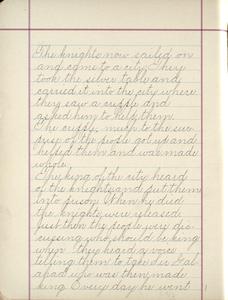 The knights now sailed on
and came to a city. They
took the silver table and
carried it into the city where
they saw a cripple and
asked him to help them.
The cripple, much to the sur-
prise of the people got up and
helped them and was made
whole.
The king of the city heard
of the knights and put them
into prison. When he died
the knights were released
Just then the people were dis-
cussing who should be king
when they heard a voice
telling them to take Sir Gal-
ahad who was then made
king. Every day he went